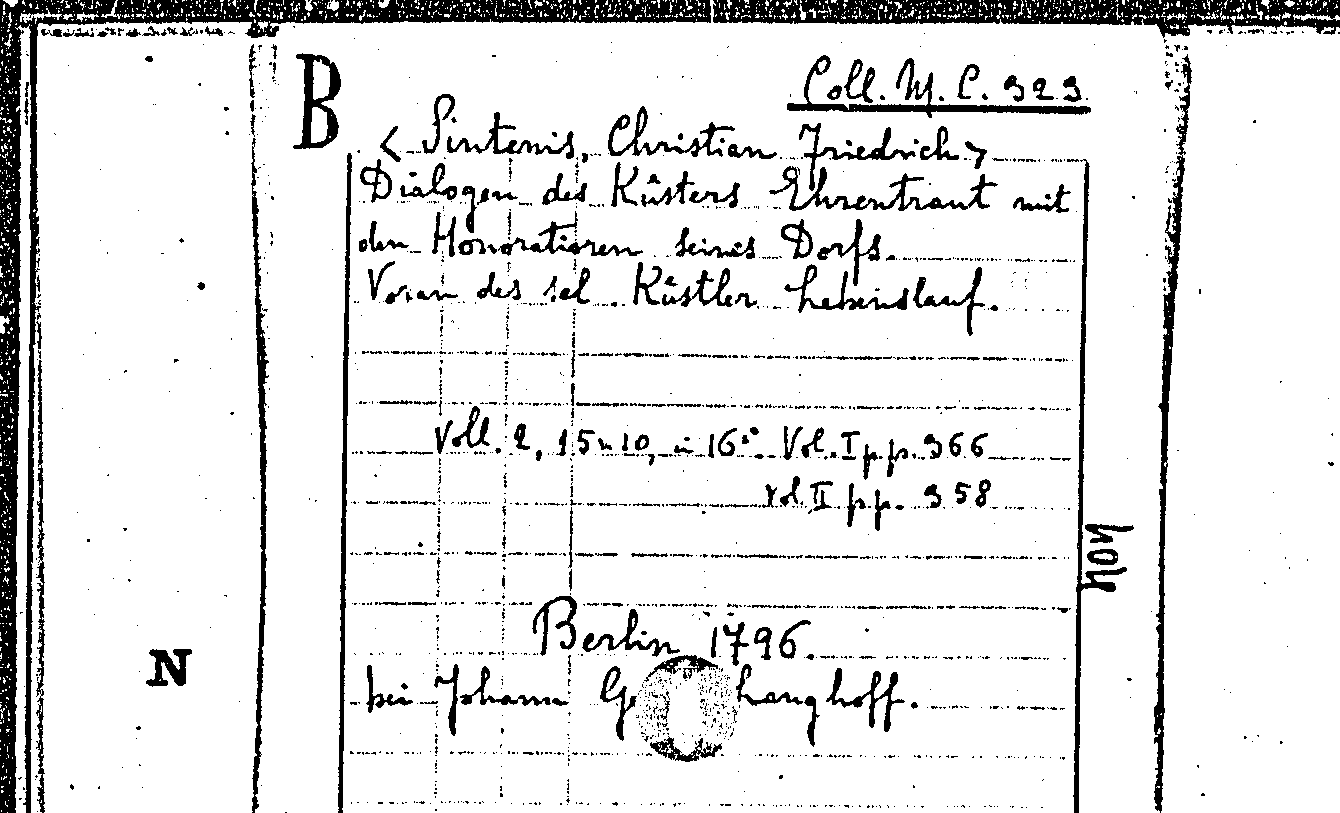 B
Coll. M. C. 323
< Sintenis, Christian Friedrich >
Dialogen des Kûsters Ehrentraut mit
den Honoratioren seines Dorfs.
Voran des sel. Kûstler Lebenslauf.
Voll. 2, 15 x 10, in 16°. Vol. I pp. 366
vol II pp. 358
hoy
Berlin 1796.
N
bei Johann G Langhoff.